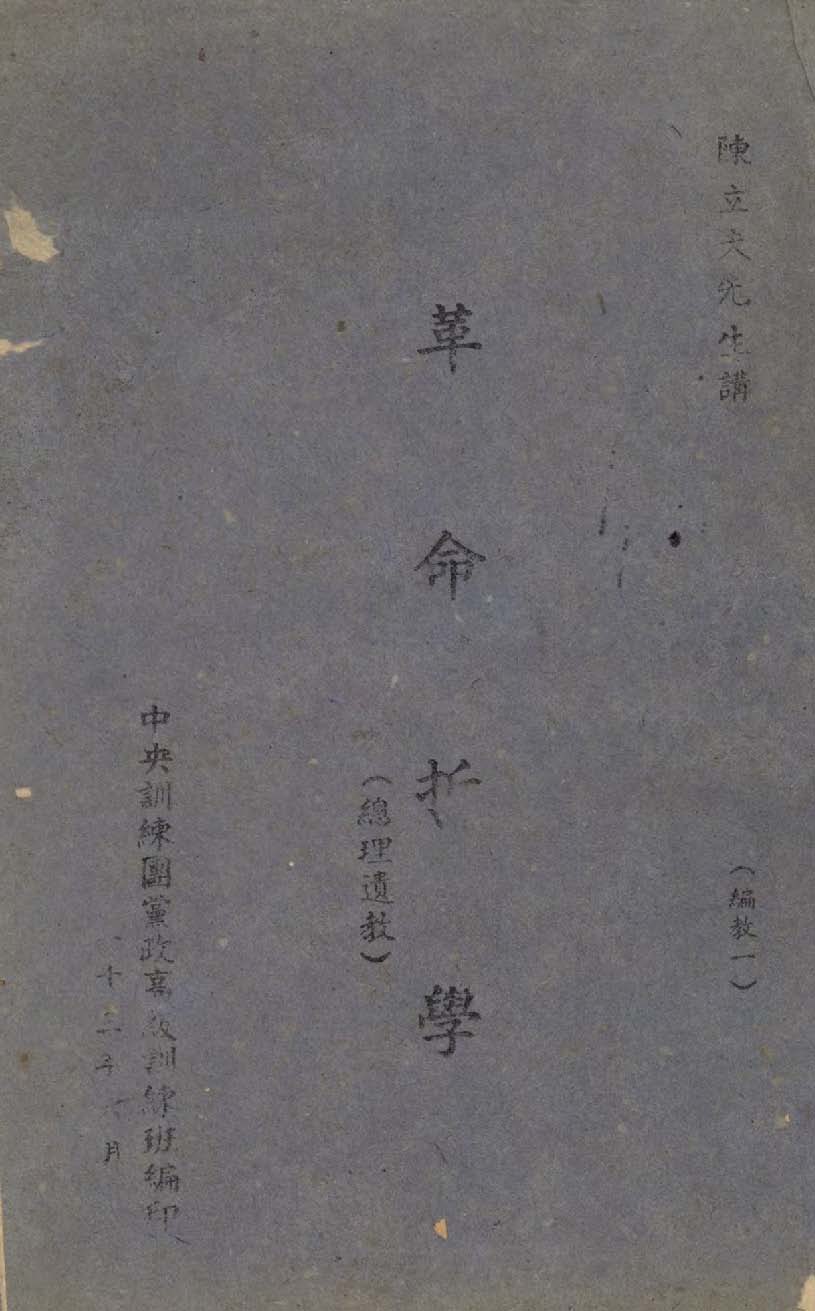 陳立夫先生講
(編教一)
革命哲學
(總理遺教)
中央訓練團黨政高級訓練班編印
十二年 月